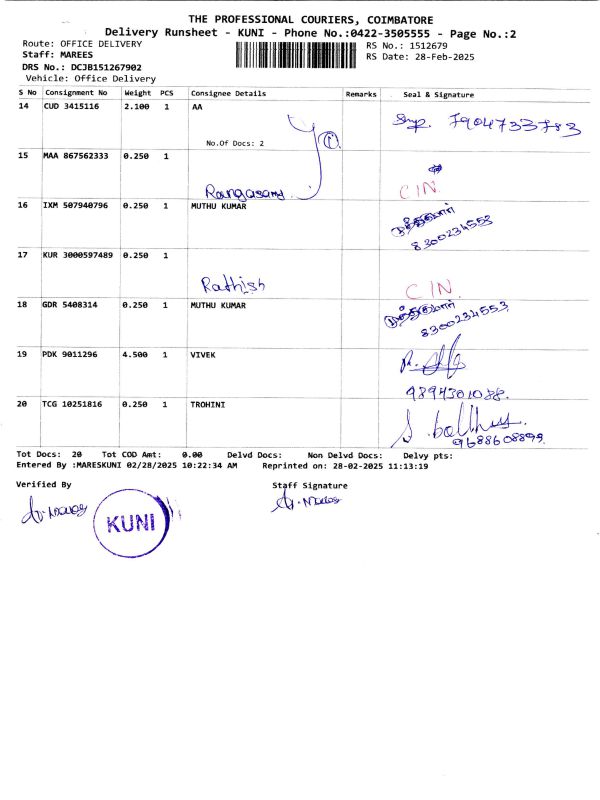 THE PROFESSIONAL COURIERS, COIMBATORE
Delivery Runsheet - KUNI - Phone No.:0422-3505555 - Page No.:2
Route: OFFICE DELIVERY
RS No.: 1512679
Staff: MAREES
RS Date: 28-Feb-2025
DRS No.: DCJB151267902
Vehicle: Office Delivery
S No Consignment No Weight PCS Consignee Details Remarks Seal & Signature
14 CUD 3415116 2.100 1 AA
7904733783
No.Of Docs: 2 1
15 MAA 867562333 0.250 1
Rangasamy CIN
16 IXM 507940796 0.250 1 MUTHU KUMAR
8300234553
17 KUR 3000597489 0.250 1
Rathish CIN
18 GDR 5408314 0.250 1 MUTHU KUMAR
8300234553
19 PDK 9011296 4.500 1 VIVEK
9894301088.
20 TCG 10251816 0.250 1 TROHINI
9688608899
Tot Docs: 20 Tot COD Amt: 0.00 Delvd Docs: Non Delvd Docs: Delvy pts:
Entered By :MARESKUNI 02/28/2025 10:22:34 AM Reprinted on: 28-02-2025 11:13:19
Verified By Staff Signature
KUNI